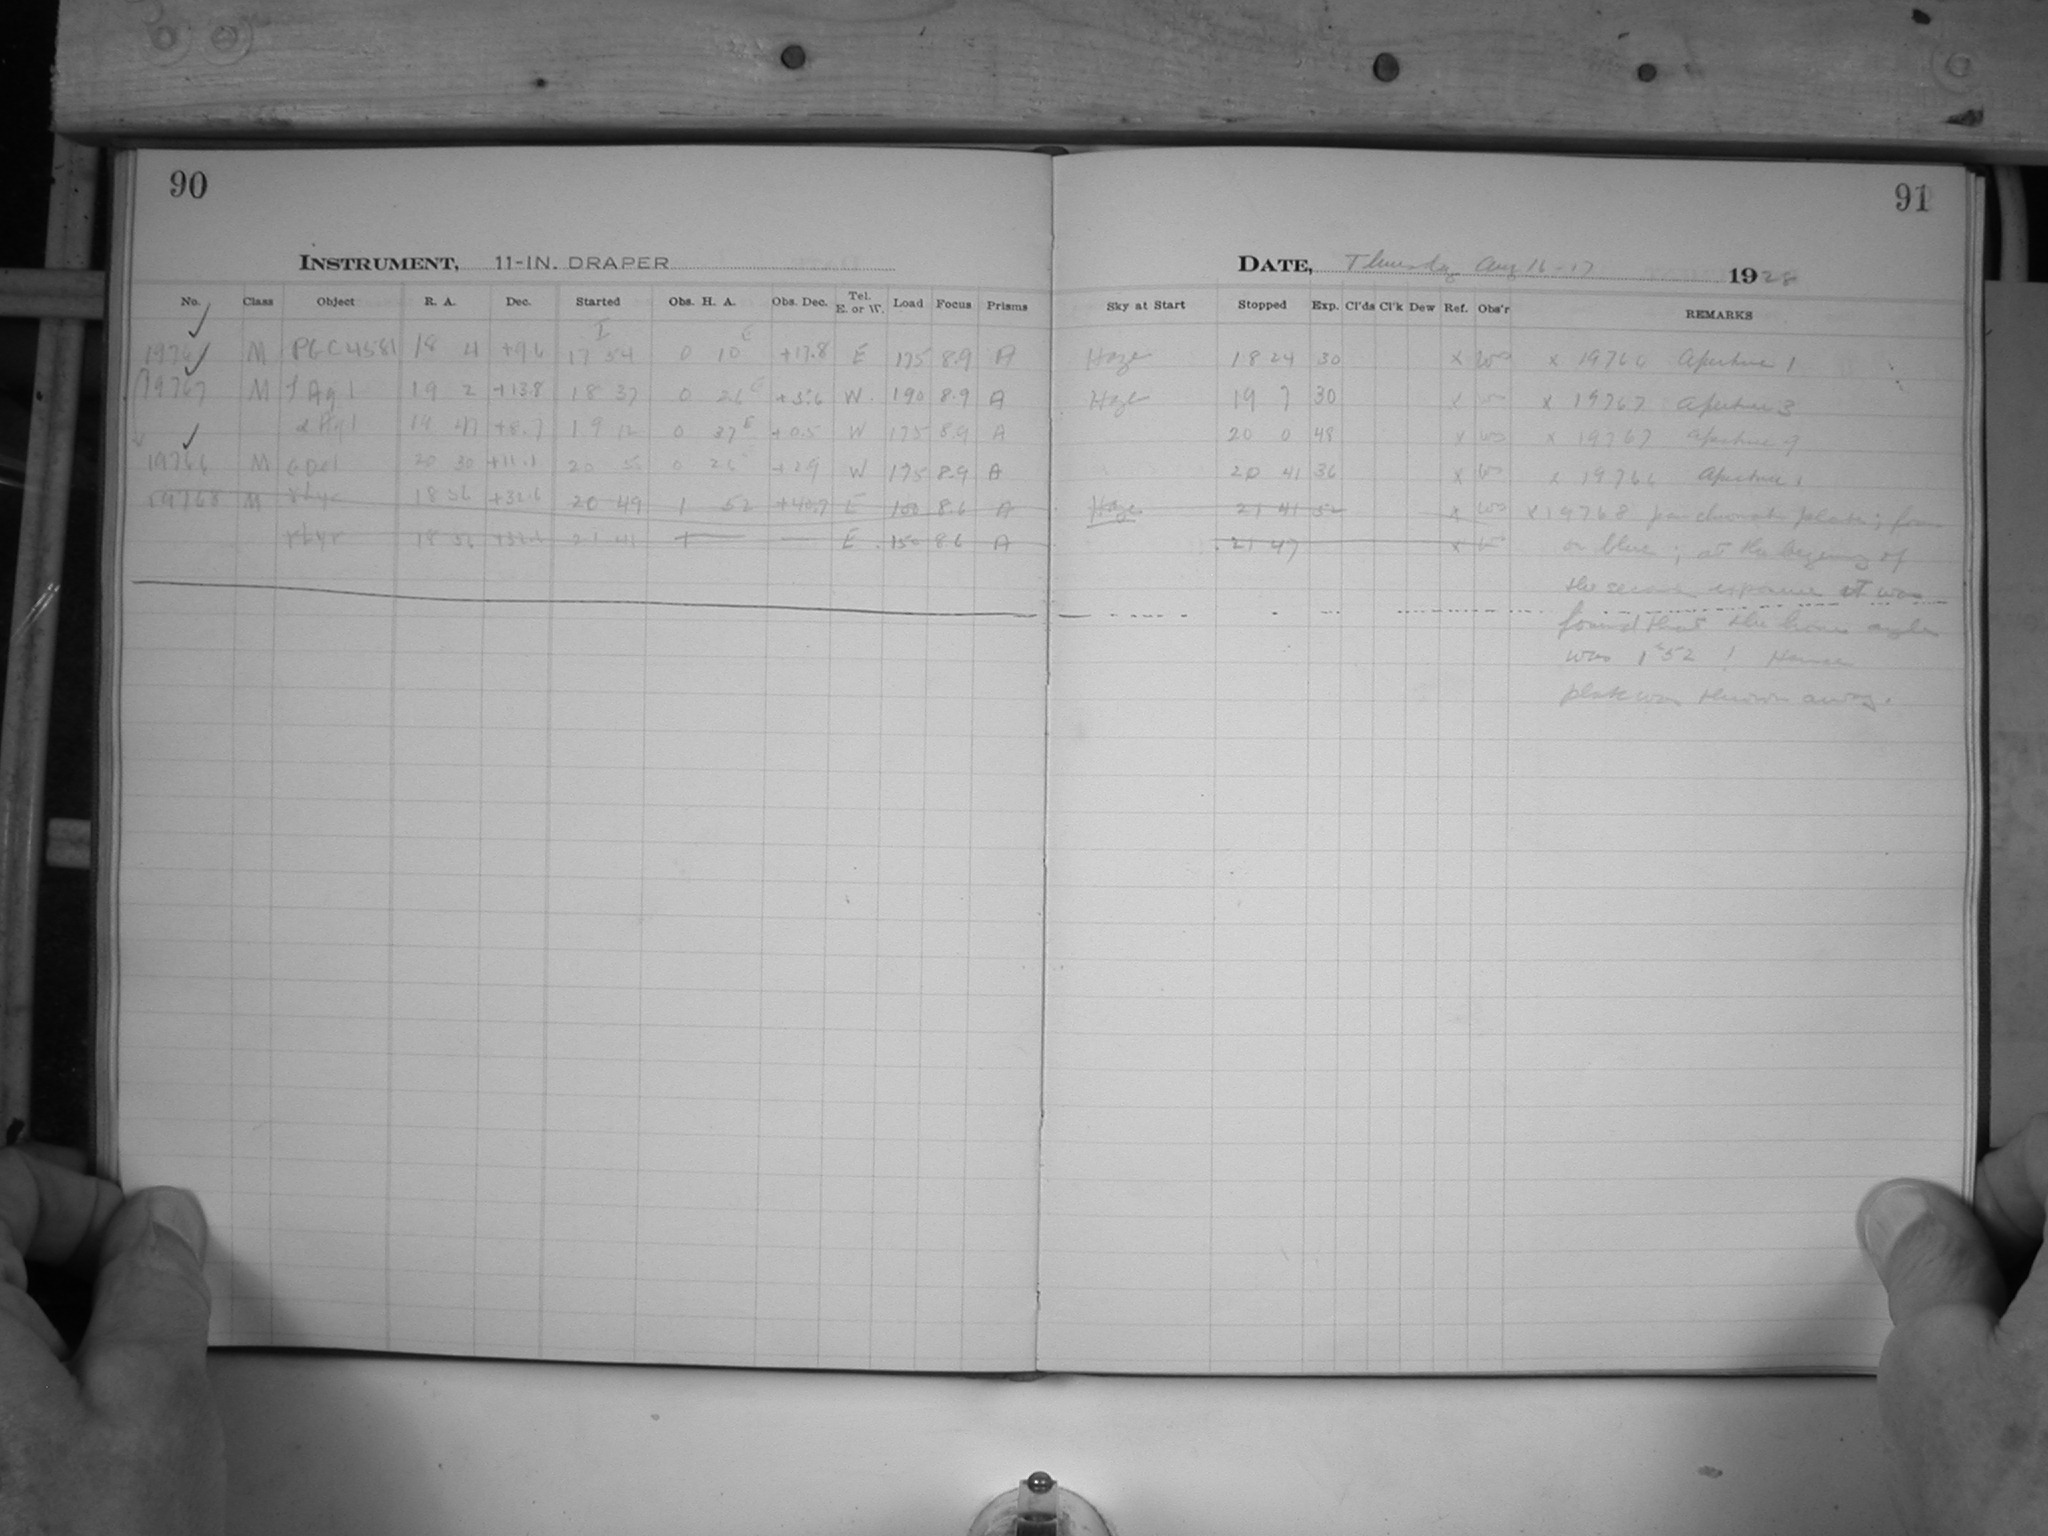 90
91
INSTRUMENT, 11-IN. DRAPER
DATE, Thursday Aug 16-17 1928
No. Class Object R. A. Dec. Started Obs. H. A. Obs. Dec. Tel. E. or W. Load Focus Prisms Sky at Start Stopped Exp. Cl'ds Cl'k Dew Ref. Obs'r REMARKS
M PGC 4581 18 4 +9.6 17 54 0 10 E +17.8 E 175 8.9 A Haze 18 24 30 x x 19766 Aperture 1
19767 M Aql 19 2 +13.8 18 37 0 26 E W 190 8.9 A Haze 19 7 30 x x 19767 Aperture 3
α Aql 19 47 +8.7 19 12 0 37 E +0.5 W 175 8.9 A 20 0 48 x x 19767 Aperture
19766 M 20 30 +11.1 20 5 0 26 +2.9 W 175 8.9 A 20 41 36 x x 19766 Aperture 1
19768 M 18 56 20 49 1 52 E 150 8.6 A Haze 21 41 52 x x 19768 panchromatic plate;
18 56 E 150 8.6 A 21 47 x
on blue; at the of
the second exposure it was
found that the hour angle
was 1 52 !
plate was thrown away.